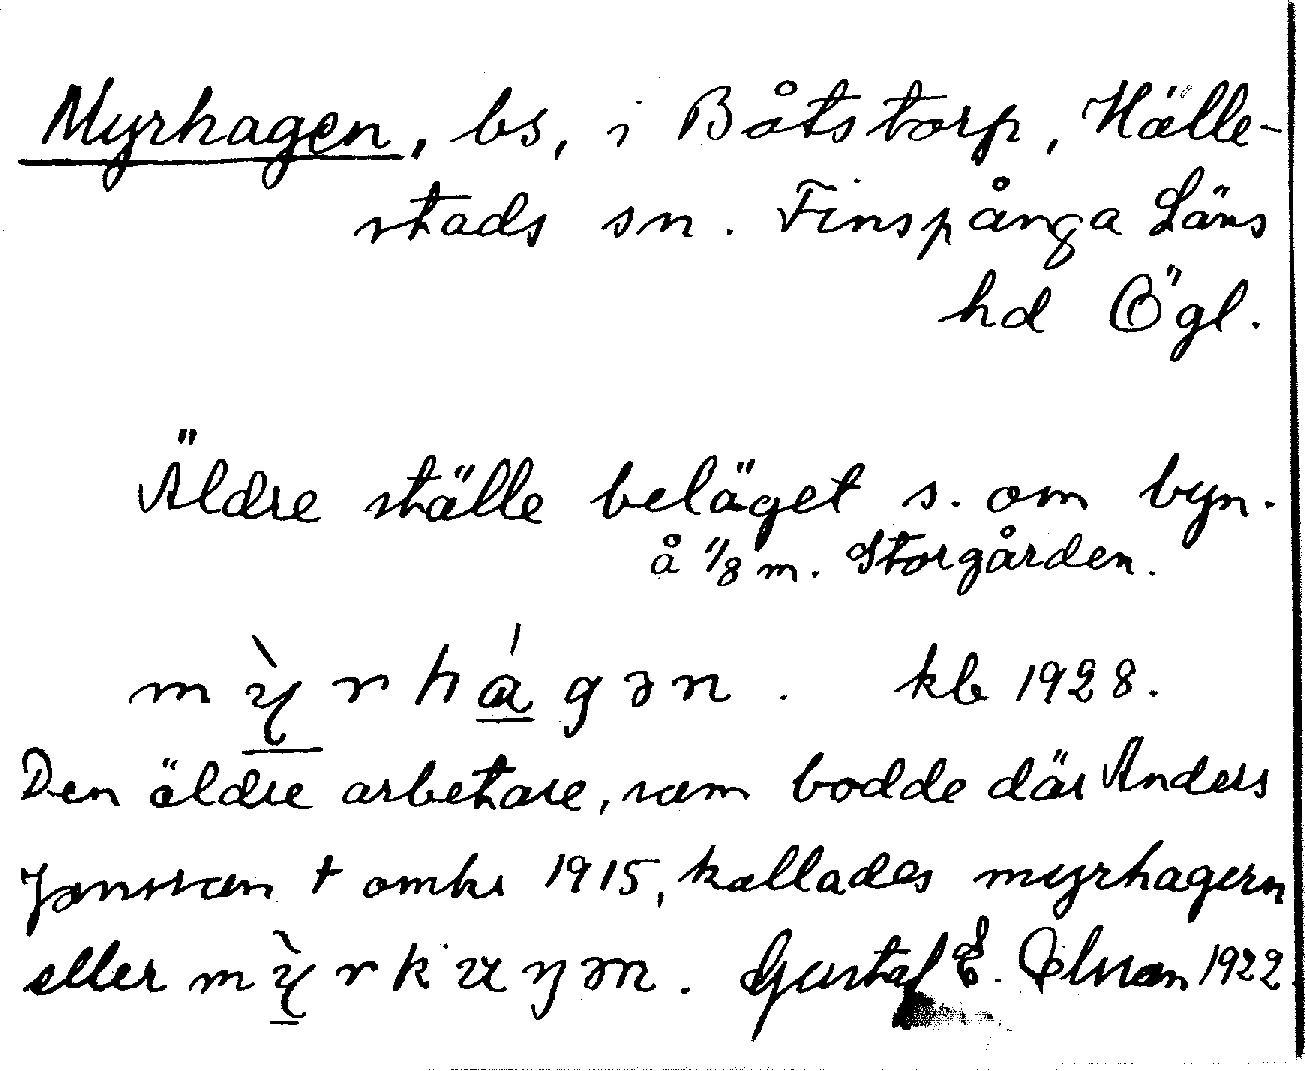 Myrhagen, bs, i Båtstorp, Hälle-
stads sn. Finspånga Läns
hd Ögl.
Äldre ställe beläget s. om byn.
å 1/8 m. Storgården.
mỳ̖rhágən. kb 1928.
Den äldre arbetare, som bodde där Anders
Jonsson † omkr 1915, kallades myrhagern
eller mỳ̖rkuŋən. Gustaf E. Olsson 1922.